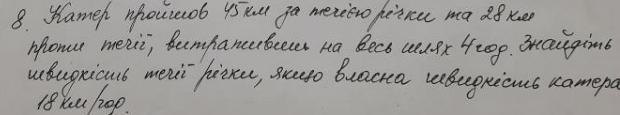 8. Катер пройшов 45 км за течією річки та 28 км
проти течії, витративши на весь шлях 4 год. Знайдіть
швидкість течії річки, якщо власна швидкість катера
18 км/год.